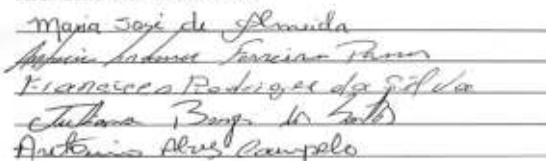 Maria José de Almeida
Ferreira
Francisco Rodrigues da Silva
Juliana dos Santos
Antônio Alves Campelo